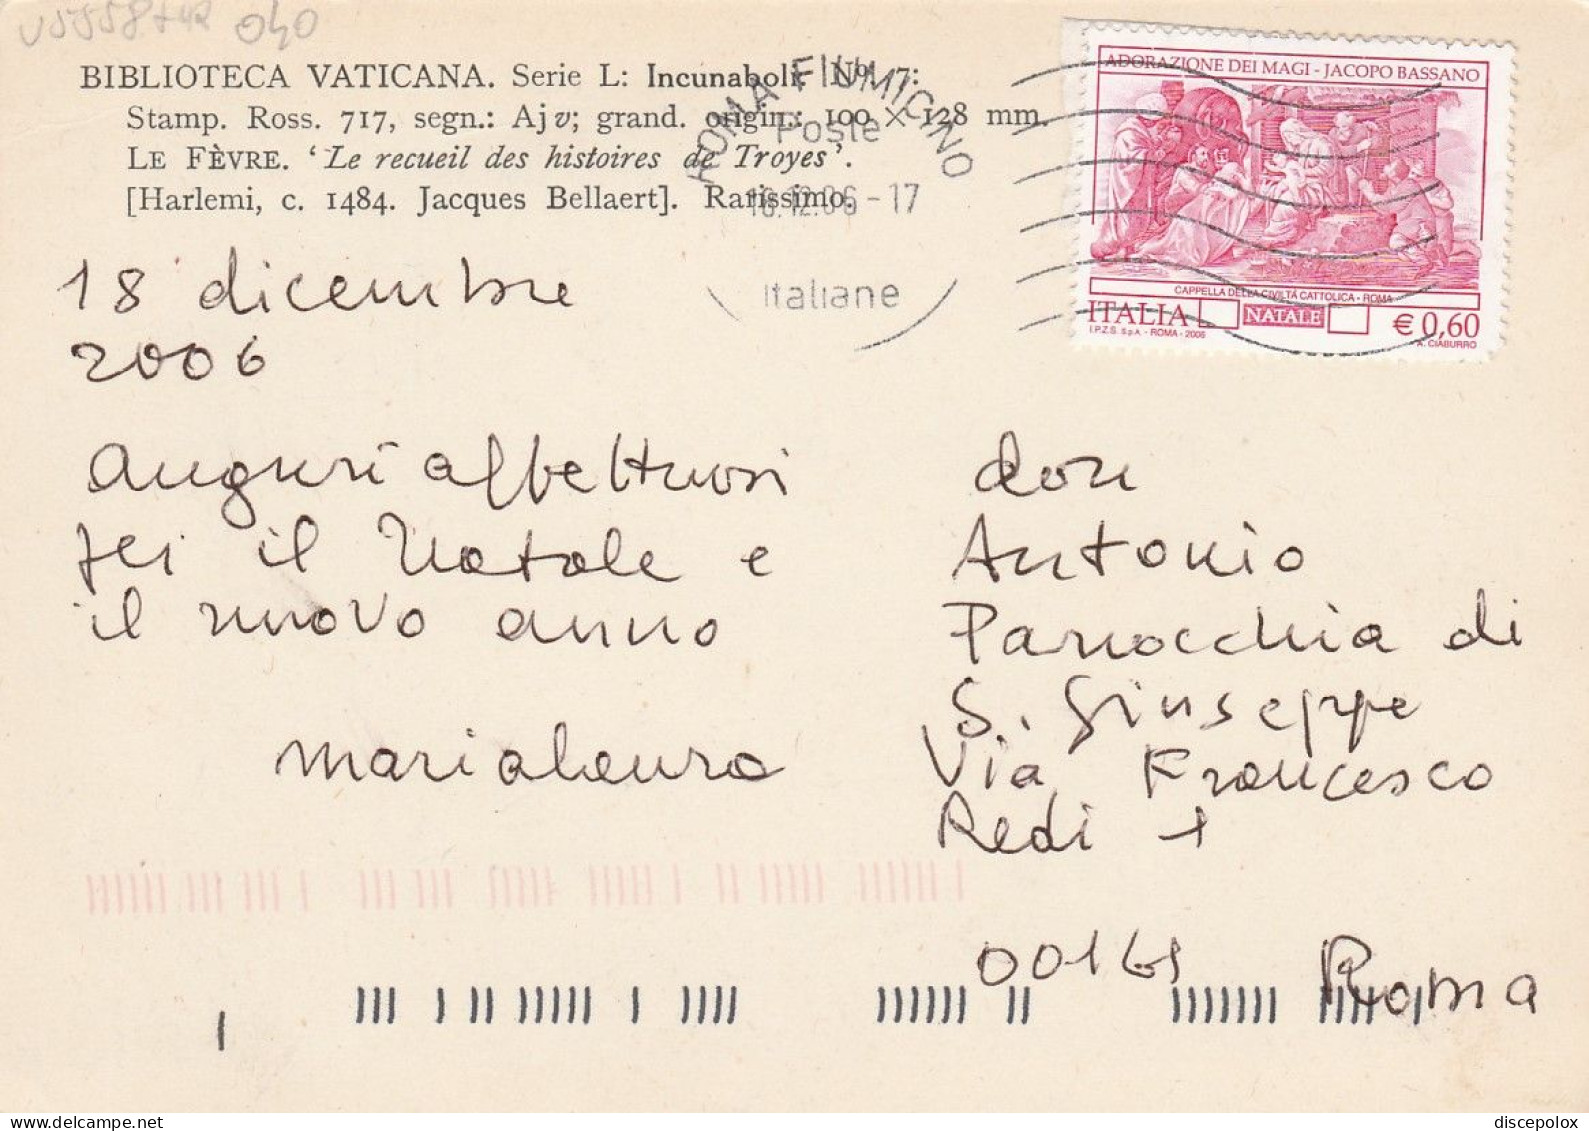 040
BIBLIOTECA VATICANA. Serie L: Incunaboli. No. 7:
Stamp. Ross. 717, segn.: Aj v; grand. origin.: 100 × 128 mm.
LE FÈVRE. ‘Le recueil des histoires de Troyes’.
[Harlemi, c. 1484. Jacques Bellaert]. Rarissimo.
ROMA FIUMICINO
Poste
12.06-17
Italiane
ADORAZIONE DEI MAGI - JACOPO BASSANO
CAPPELLA DELLA CIVILTÀ CATTOLICA - ROMA
ITALIA NATALE € 0,60
I.P.Z.S. S.p.A. - ROMA - 2006 A. CIABURRO
18 dicembre
2006
auguri affettuosi
per il Natale e
il nuovo anno
marialaura
don
Antonio
Parrocchia di
S. Giuseppe
Via Francesco
Redi 1
00161 Roma
discepolox